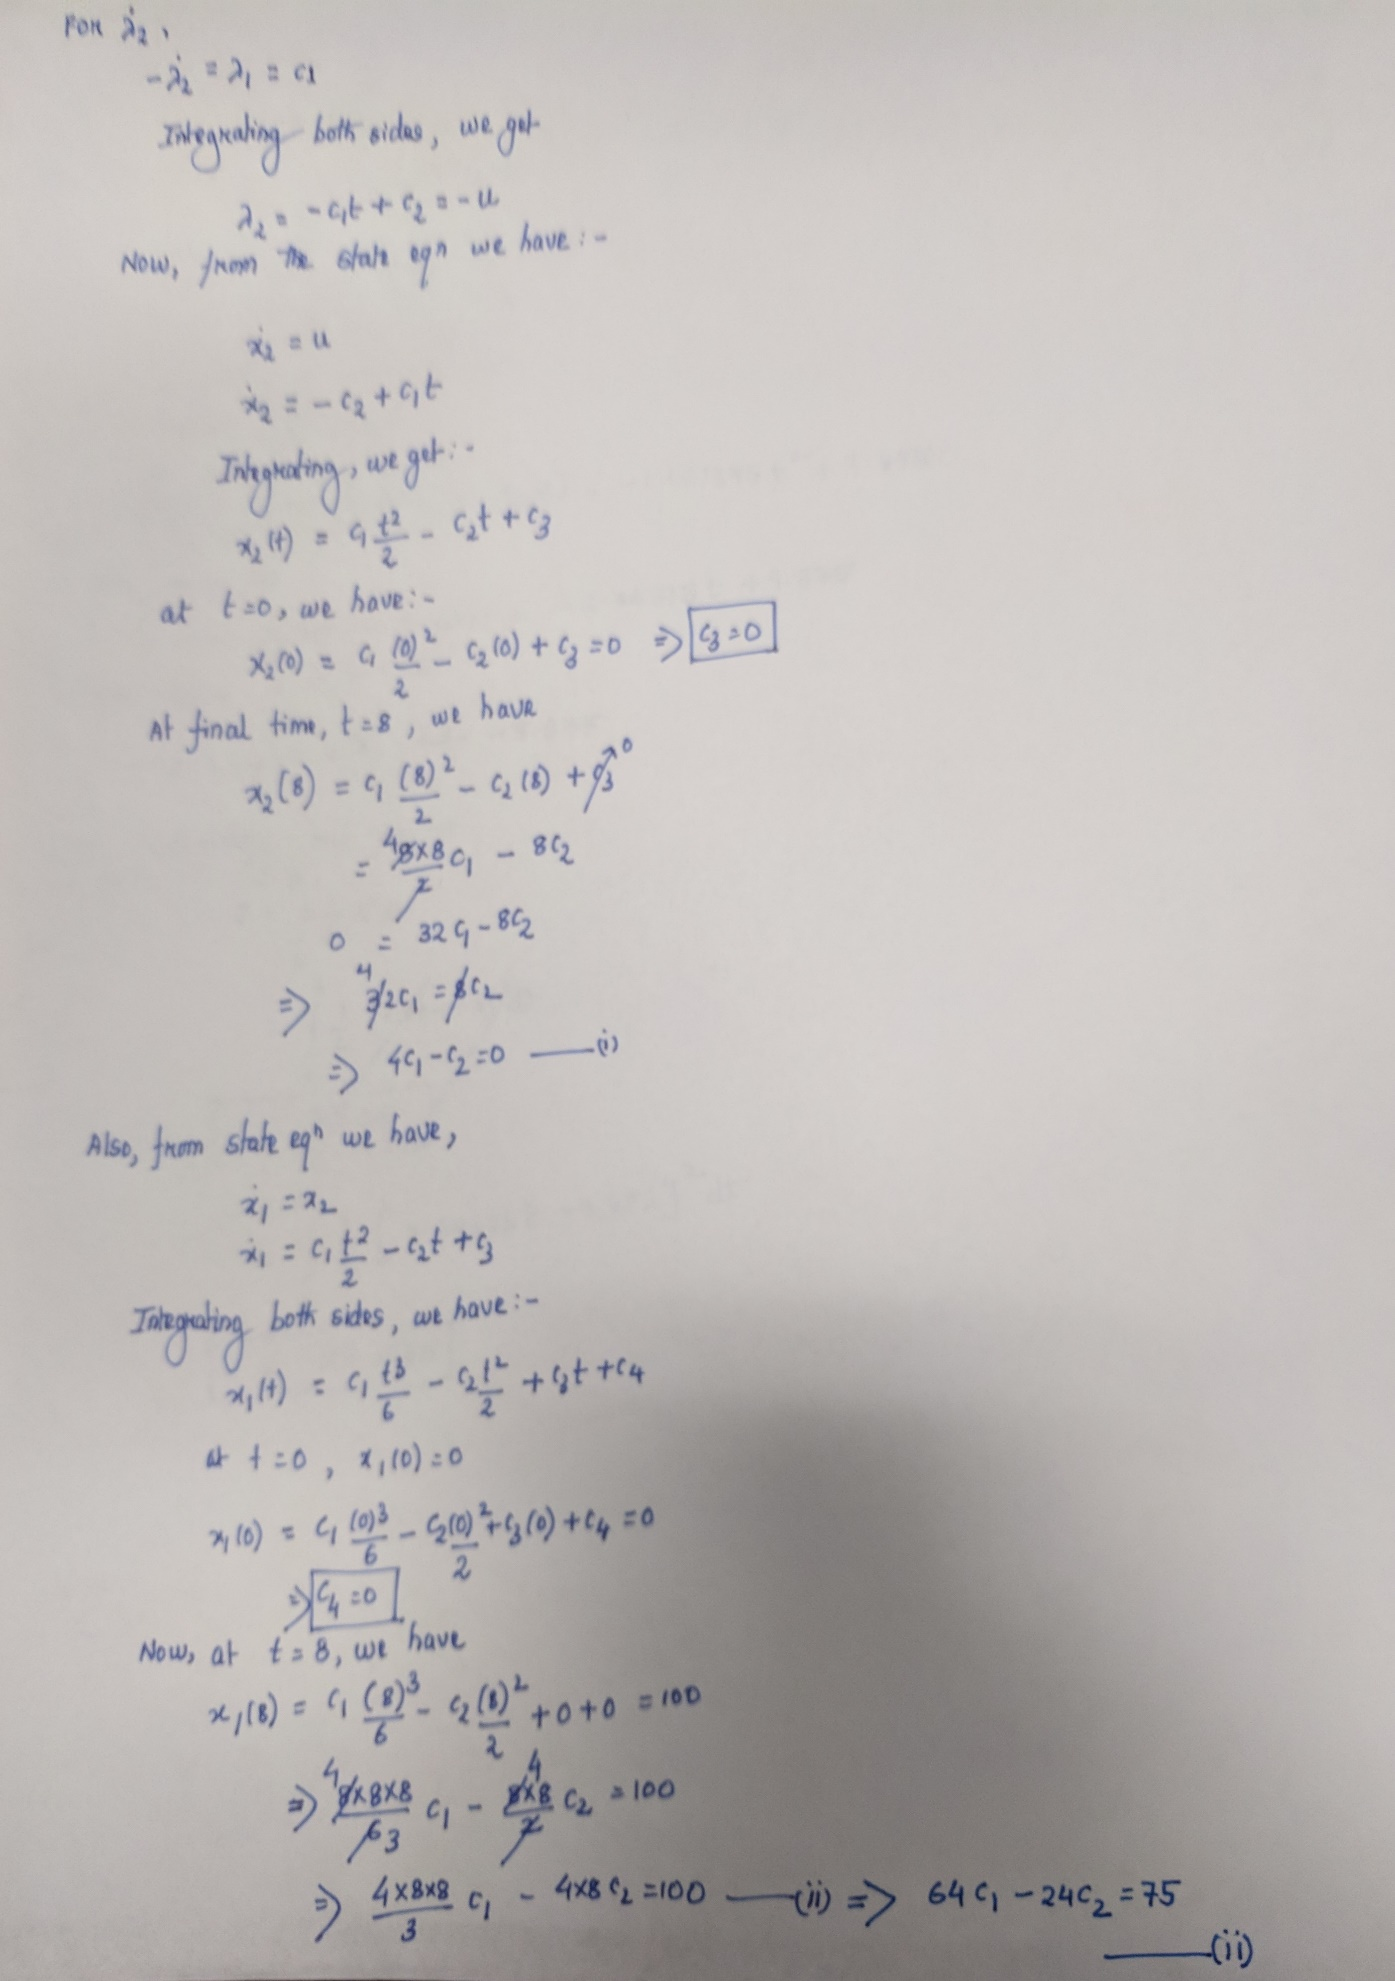 FOR λ̇₂,
-λ̇₂ = λ₁ = c1
Integrating both sides, we get
λ₂ = -c₁t + c₂ = -u
Now, from the state eqn we have :-
ẋ₂ = u
ẋ₂ = -c₂ + c₁t
Integrating, we get :-
x₂(t) = c₁ t²/2 - c₂t + c₃
at t=0, we have :-
x₂(0) = c₁ (0)²/2 - c₂(0) + c₃ = 0 ⇒ c₃ = 0
At final time, t=8, we have
x₂(8) = c₁ (8)²/2 - c₂(8) + c₃ 0
= 4 8×8/2 c₁ - 8c₂
0 = 32c₁ - 8c₂
⇒ 4 32c₁ = 8c₂
⇒ 4c₁ - c₂ = 0 —(i)
Also, from state eqn we have,
ẋ₁ = x₂
ẋ₁ = c₁ t²/2 - c₂t + c₃
Integrating both sides, we have :-
x₁(t) = c₁ t³/6 - c₂ t²/2 + c₃t + c₄
at t=0, x₁(0) = 0
x₁(0) = c₁ (0)³/6 - c₂(0)²/2 + c₃(0) + c₄ = 0
⇒ c₄ = 0
Now, at t=8, we have
x₁(8) = c₁ (8)³/6 - c₂ (8)²/2 + 0 + 0 = 100
⇒ 4 8×8×8/6 3 c₁ - 4 8×8/2 c₂ = 100
⇒ 4×8×8/3 c₁ - 4×8 c₂ = 100 —(ii) ⇒ 64c₁ - 24c₂ = 75
—(ii)